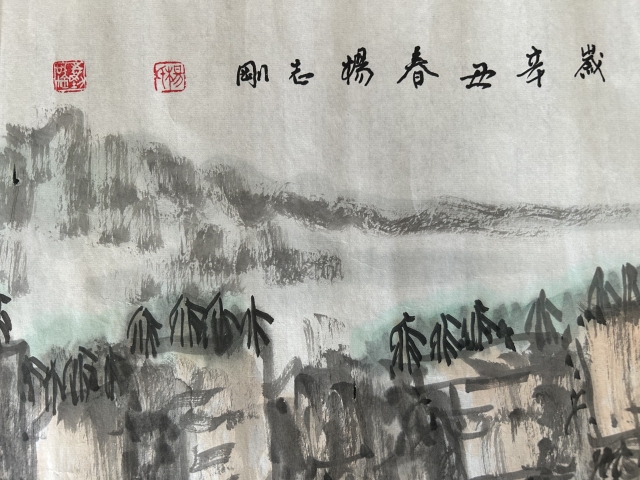 歲辛丑春楊志剛
楊